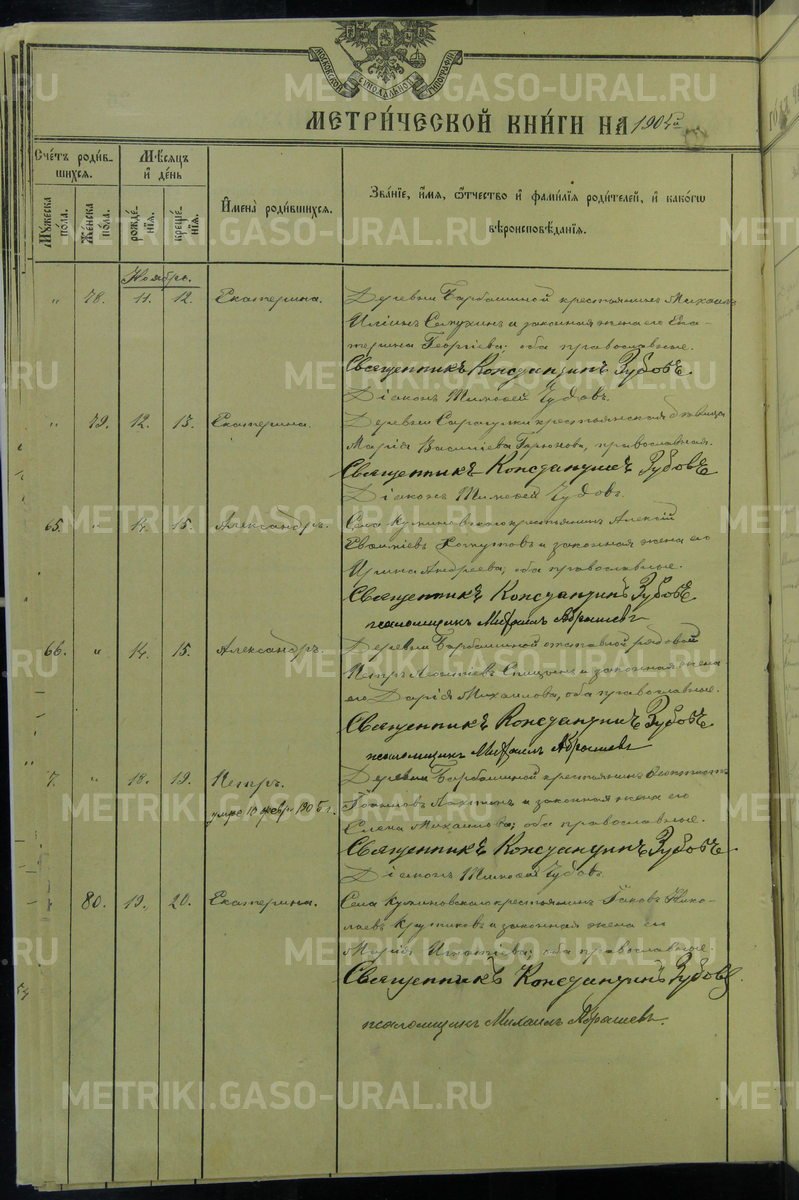 МОСКОВСКОЙ СѴНОДАЛЬНОЙ ТИПОГРАФІИ
МЕТРИ́ЧЕСКОЙ КНИ́ГИ НА 1904
Сче́тъ роди́в-
шихся.
Му́жеска по́ла.
Же́нска по́ла.
Мѣ́сяцъ и҆ де́нь
рожде́-
нїя.
креще́-
нїя.
И҆мена̀ роди́вшихся.
Зва́нїе, и҆́мя, ѻ҆́тчество и҆ фами́лїя роди́телей, и҆ како́гѡ
вѣроисповѣ́данїя.
Ноябрь.
" 78. 11. 12. Екатерина. Деревни Барабашиной крестьянинъ Михаилъ
Ильинъ и законная жена его Ека-
терина Георгіева; оба православные.
Священникъ Константинъ Зубовъ
Діаконъ Тимоѳей Чудовъ.
" 79. 12. 13. Екатерина. Деревни крестьянская дѣвица
Марія Василіева, православная.
Священникъ Константинъ Зубовъ
Діаконъ Тимоѳей Чудовъ.
65. " 14. 15. Александръ. Села крестьянинъ Алексій
и законная жена его
Ирина Андреева; оба православные.
Священникъ Константинъ Зубовъ
псаломщикъ Михаилъ Абрашевъ
66. " 14. 15. Александръ. Деревни отставной рядовой
Петръ и законная жена
его Дарія Михаилова, оба православные.
Священникъ Константинъ Зубовъ
псаломщикъ Михаилъ Абрашевъ
7. " 18. 19. Петръ. Деревни крестьянинъ
умеръ 1905 г. и законная жена его
Елена Михаилова; оба православные.
Священникъ Константинъ Зубовъ
Діаконъ Тимоѳей Чудовъ
80. 19. 20. Екатерина. Села крестьянинъ Іаковъ Нико-
лаевъ и законная жена его
Марія; оба православные.
Священникъ Константинъ Зубовъ
псаломщикъ Михаилъ Абрашевъ.
METRIKI.GASO-URAL.RU